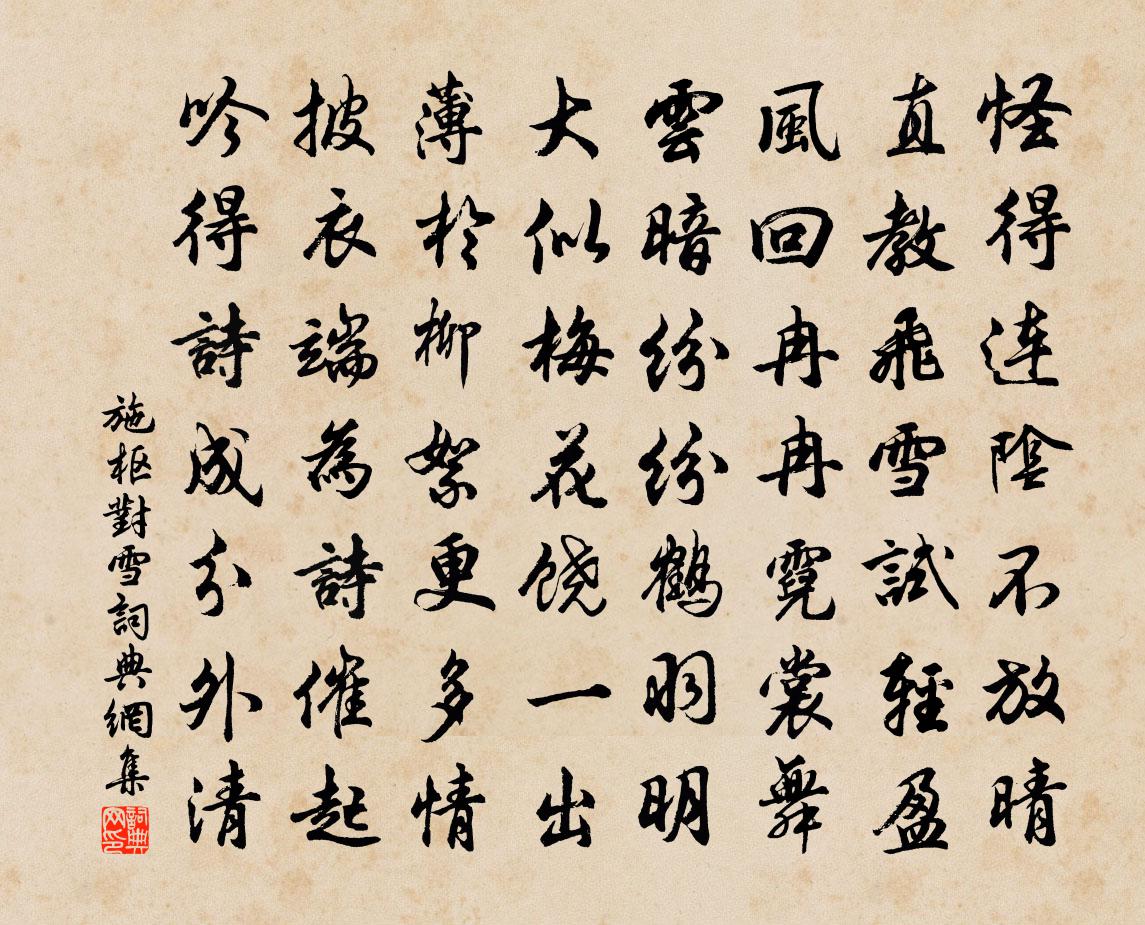 怪得連陰不放晴
直教飛雪試輕盈
風回冉冉霓裳舞
雲暗紛紛鶴羽明
大似梅花饒一出
薄於柳絮更多情
披衣端為詩催起
吟得詩成分外清
施枢對雪詞典網集
詞典网印